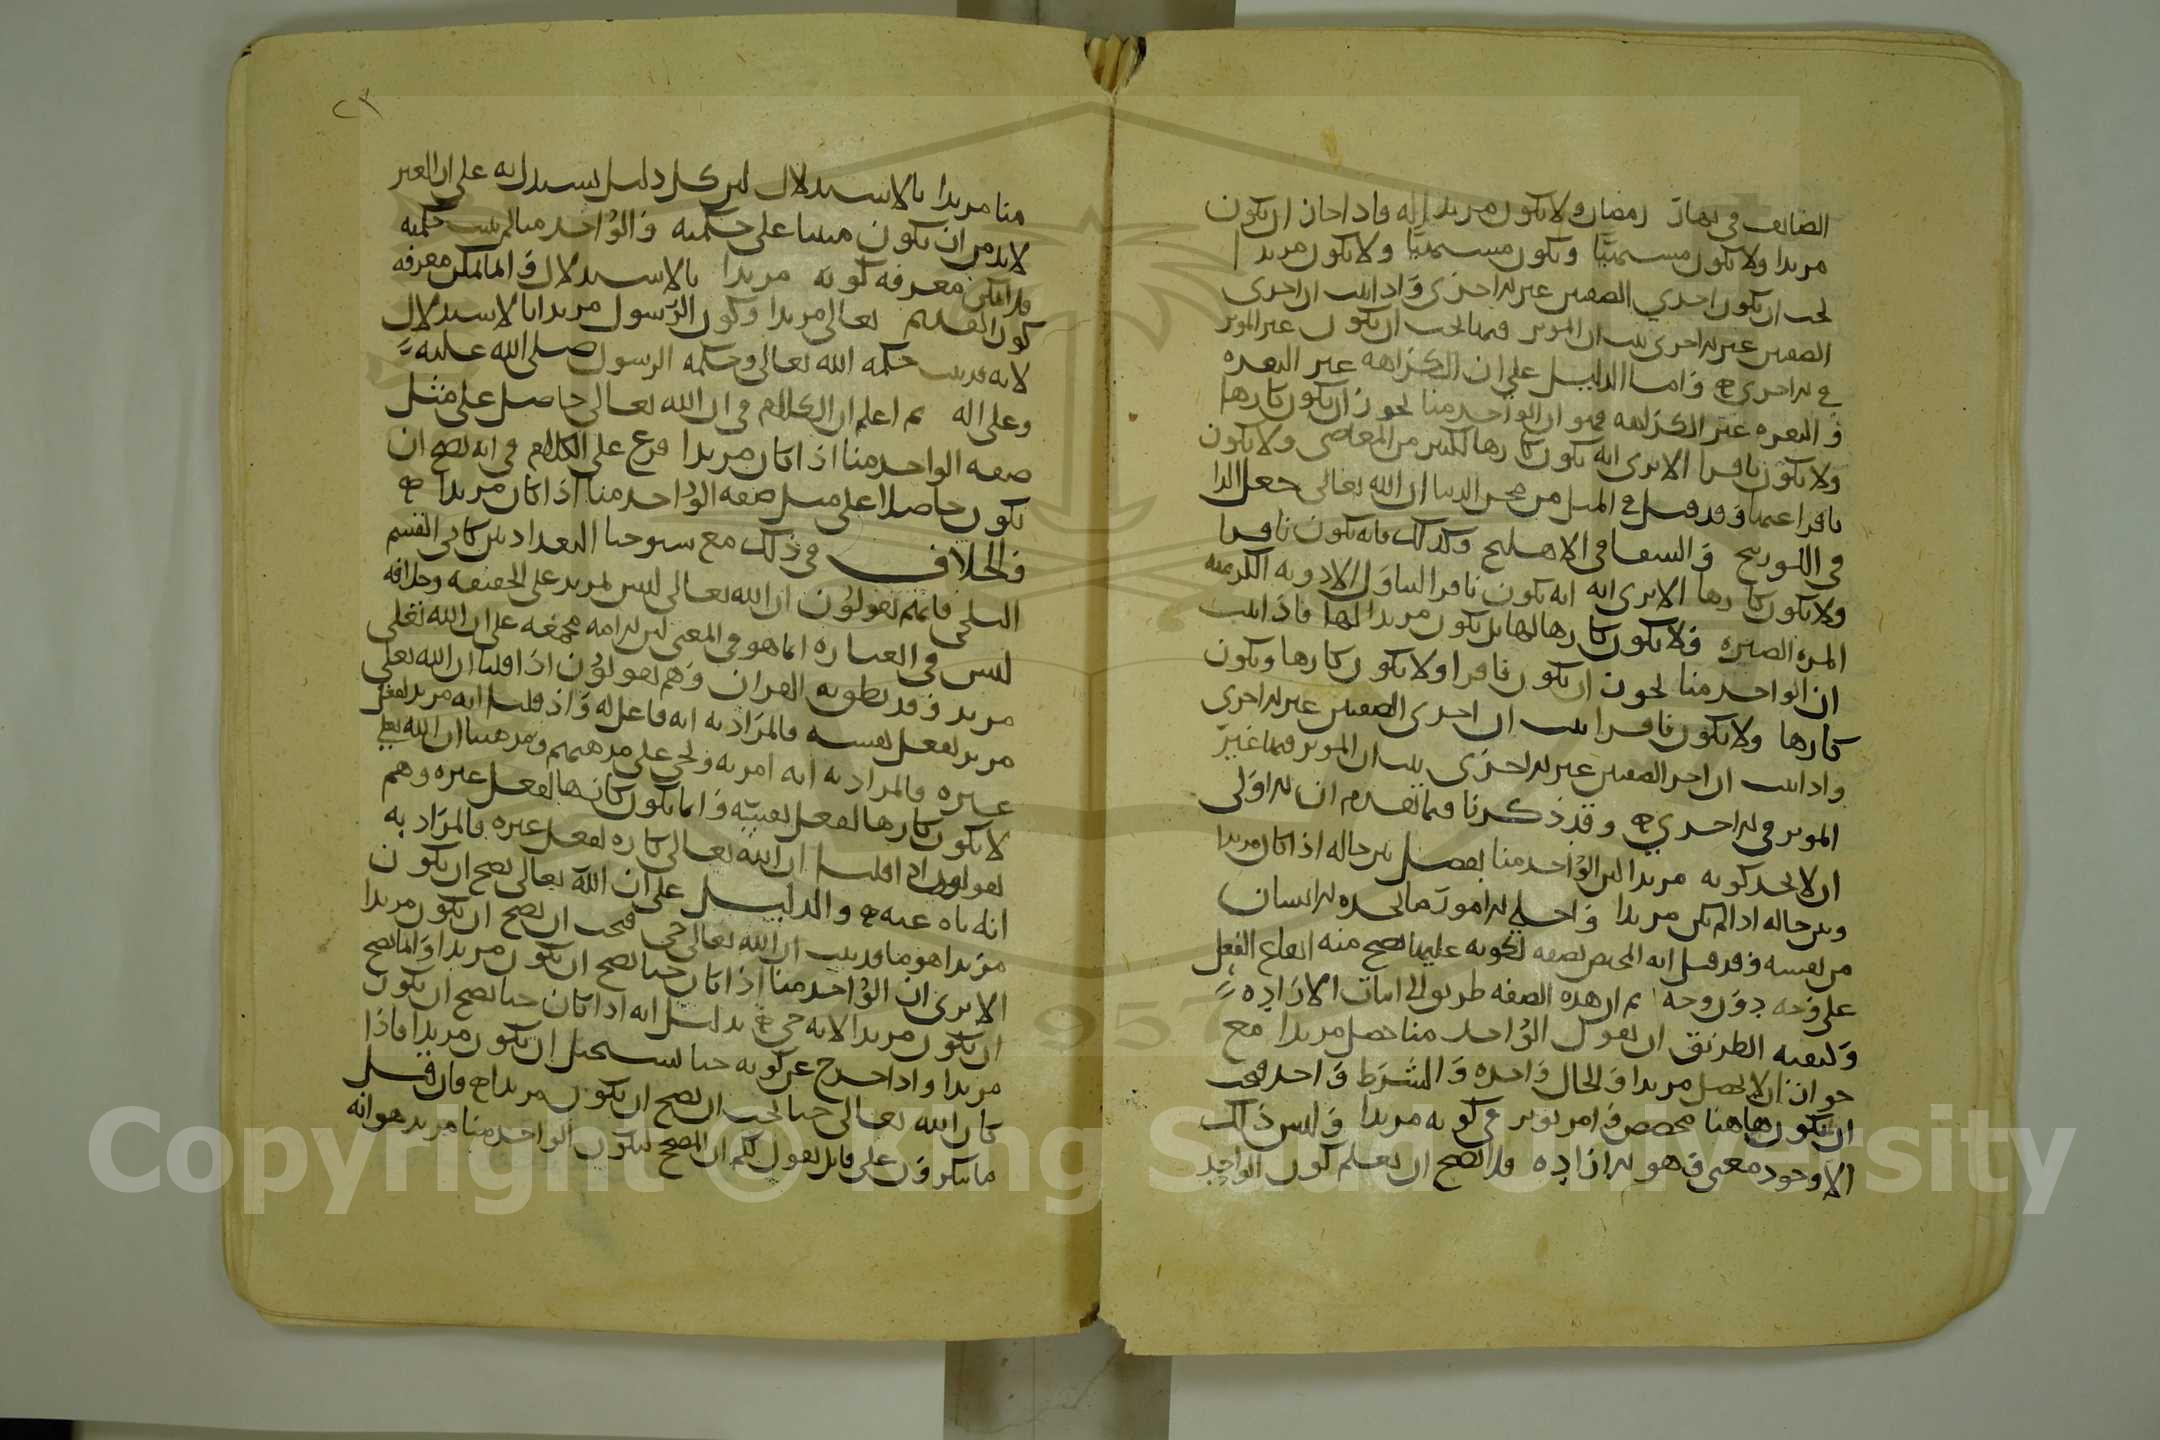 الصائف في نهار رمضان ولا يكون مريدا له فاذا جاز ان يكون
مريدا ولا يكون مشتهيًا ويكون مشتهيًا ولا يكون مريدا
يجب ان يكون احدي الصفتين غير الاخرى واذا ثبت ان احدى
الصفتين غير الاخرى ثبت ان الموثر فيها يجب ان يكون غير الموثر
في الاخرى واما الدليل على ان الكراهه غير النفره
والنفره غير الكراهه فهو ان الواحد منا يجوز ان يكون كارها
ولا يكون نافرا الا ترى انه يكون كارها لكثير من المعاصي ولا يكون
نافرا عنها وقد قيل في المثل من محن الدنيا ان الله تعالى جعل الدا
في اللوزينج والشفا في الاهليلج وكذلك فانه يكون نافرا
ولا يكون كارها الا ترى انه انه يكون نافرا لتناول الادويه الكريهه
المره الصبره ولا يكون كارها لها بل يكون مريدا لها فاذا ثبت
ان الواحد منا يجوز ان يكون نافرا ولا يكون كارها ويكون
كارها ولا يكون نافرا ثبت ان احدى الصفتين غير الاخرى
واذا ثبت ان احد الصفتين غير الاخرى ثبت ان الموثر فيها غير
الموثر في الاخرى وقد ذكرنا فيما تقدم ان الاولى
ان لا يحد كونه مريدا لان الواحد منا يفصل بين حاله اذا كان مريدا
وبين حاله اذا لم يكن مريدا واجلى الامور ما يجده الانسان
من نفسه وقد قيل انه المختص بصفه لكونه عليها يصح منه ايقاع الفعل
على وجه دون وجه ثم ان هذه الصفه طريق الى اثبات الاراده
وكيفيه الطريق ان يقول الواحد منا حصل مريدا مع
جواز ان لا يحصل مريدا والحال واحده والشرط واحد فيجب
ان يكون هاهنا مخصص وامر يوثر في كونه مريدا وليس ذلك
الا وجود معنى وهو الاراده فلا يصح ان يعلم كون الواحد
منا مريدا بالاستدلال لان كل دليل يستدل به على ان الغير
لابد من ان يكون مبنيا على حكمته والواحد منا لم يثبت حكمته
فلا يمكن معرفه كونه مريدا بالاستدلال وانما امكن معرفه
كون القديم تعالى مريدا وكون الرسول مريدا بالاستدلال
لانه قد ثبت حكمه الله تعالى وحكمه الرسول صلى الله عليه
وعلى اله ثم اعلم ان الكلام في ان الله تعالى حاصل على مثل
صفه الواحد منا اذا كان مريدا فرع على الكلام في انه يصح ان
يكون حاصلا على مثل صفه الواحد منا اذا كان مريدا
والخلاف في ذلك مع شيوخنا البغداديين كابي القسم
البلخي فانهم يقولون ان الله تعالى ليس بمريد على الحقيقه وخلافه
ليس في العباره انما هو في المعنى لان الامه مجمعه على ان الله تعلى
مريد وقد نطق به القران وهم يقولون اذا قلنا ان الله تعلى
مريد لفعل نفسه فالمراد به انه فاعل له واذ قلنا انه مريد لفعل
غيره فالمراد به انه امر به ونحن على مذهبهم ومذهبنا ان الله تعلى
لا يكون كارها لفعل نفسه وانما يكون كارها لفعل غيره وهم
يقولون اذا قلنا ان الله تعالى كاره لفعل غيره فالمراد به
انه ناه عنه والدليل على ان الله تعالى يصح ان يكون
مريدا هو ما قد ثبت ان الله تعالى حي فيجب ان يصح ان يكون مريدا
الا ترى ان الواحد منا اذا كان حيا يصح ان يكون مريدا وانما يصح
ان يكون مريدا لانه حي بدليل انه اذا كان حيا يصح ان يكون
مريدا واذا خرج عن كونه حيا يستحيل ان يكون مريدا فاذا
كان الله تعالى حيا يجب ان يصح ان يكون مريدا فان قيل
ما تنكرون على قائل يقول لكم ان المصحح لكون الواحد منا مريد هو انه